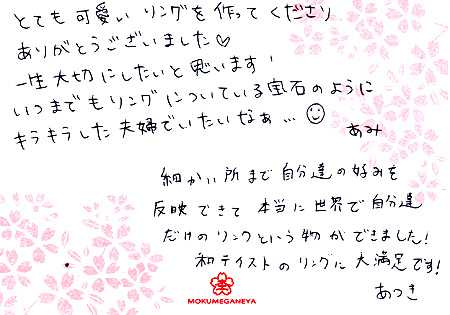 とても可愛いリングを作ってくださり
ありがとうございました♡
一生大切にしたいと思います！
いつまでもリングについている宝石のように
キラキラした夫婦でいたいなぁ…☺
あみ
細かい所まで自分達の好みを
反映できて本当に世界で自分達
だけのリングという物ができました！
和テイストのリングに大満足です！
あつき
MOKUMEGANEYA